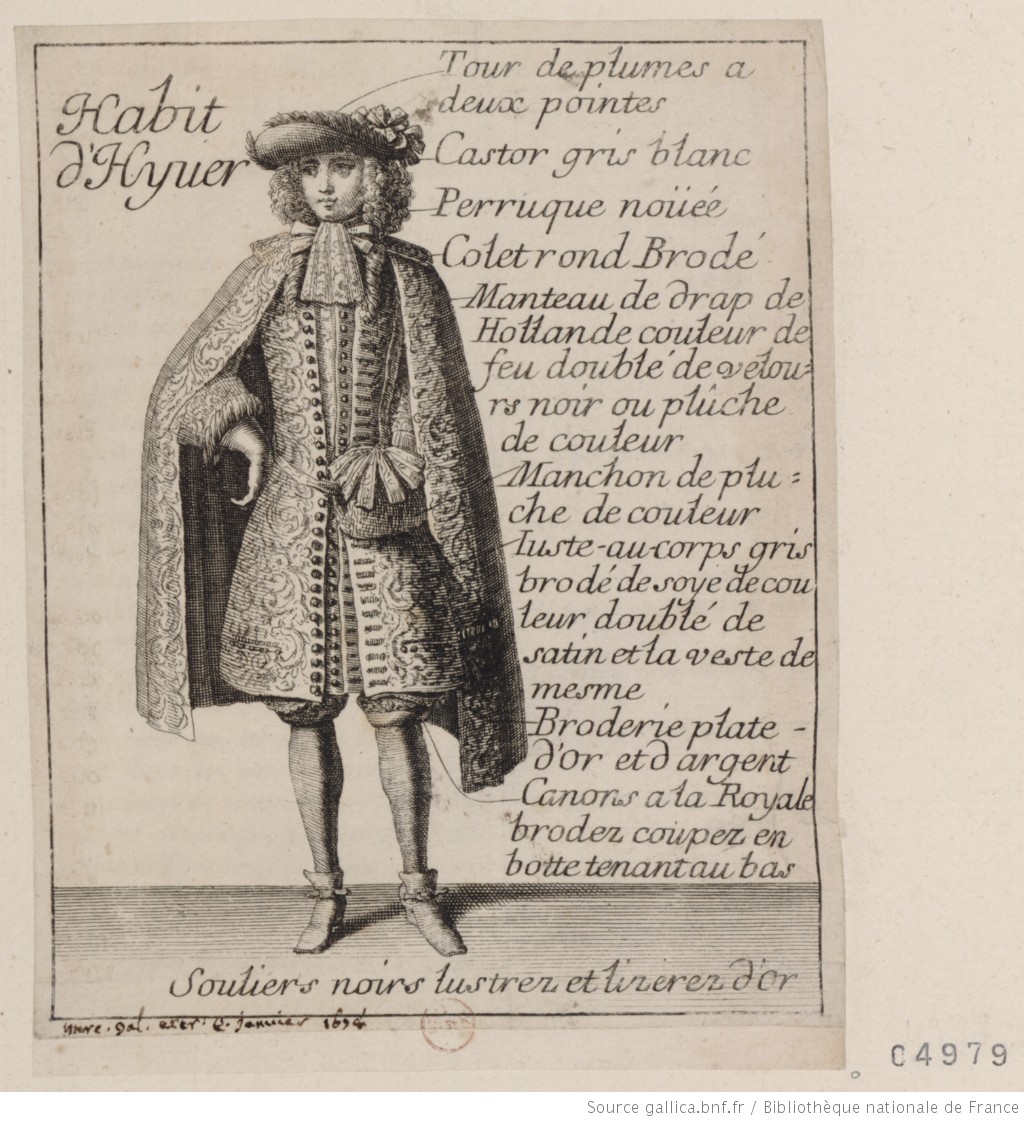 Habit
d'Hyuer
Tour de plumes a
deux pointes
Castor gris blanc
Perruque noüéé
Colet rond Brodé
Manteau de drap de
Hollande couleur de
feu doublé de velou=
rs noir ou plûche
de couleur
Manchon de plu=
che de couleur
Iuste-au-corps gris
brodé de soye de cou
leur doublé de
satin et la veste de
mesme
Broderie plate -
d'Or et d argent
Canons a la Royale
brodez coupez en
botte tenant au bas
Souliers noirs lustrez et lizerez d'Or
merc. gal. extr. janvier 1678
04979
Source gallica.bnf.fr / Bibliothèque nationale de France